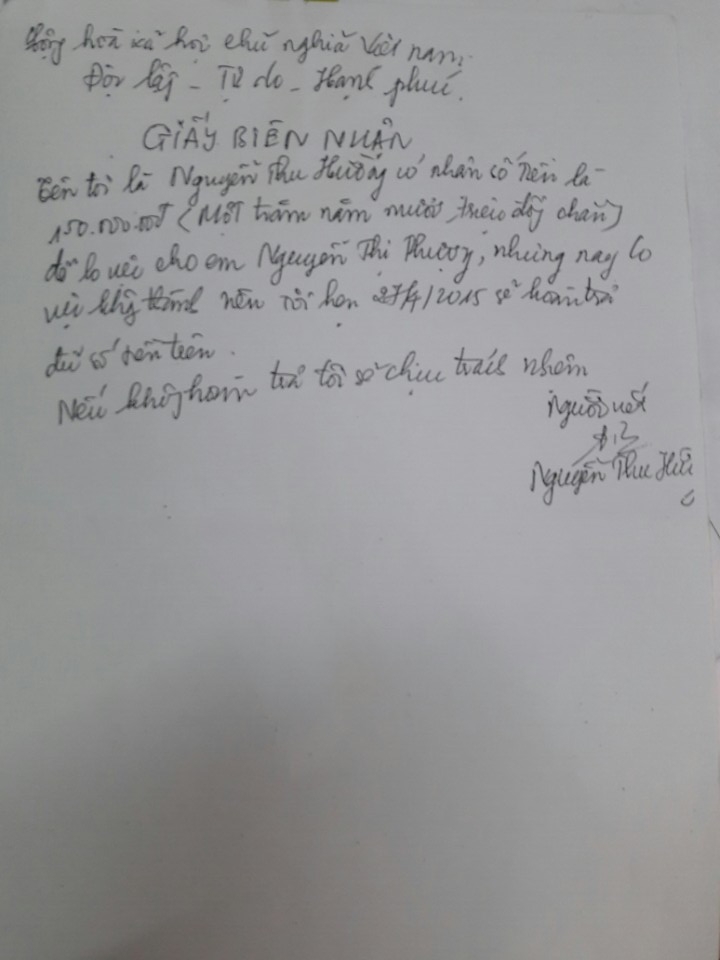 Cộng hoà xã hội chủ nghĩa Việt nam.
Độc lập - Tự do - Hạnh phúc.
GIẤY BIÊN NHẬN
Tên tôi là Nguyễn Thu Hường có nhận số tiền là
150.000.000đ (Một trăm năm mươi triệu đồng chẵn)
để lo việc cho em Nguyễn Thị Phượng, nhưng nay lo
việc không thành nên tôi hẹn 27/4/2015 sẽ hoàn trả
đủ số tiền trên.
Nếu không hoàn trả tôi sẽ chịu trách nhiệm
Người viết
Nguyễn Thu Hườ